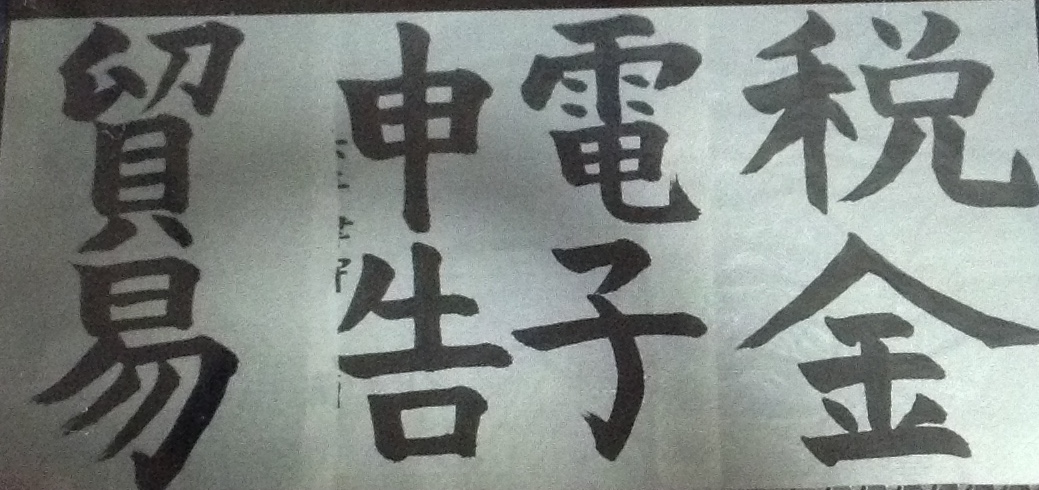 税金
電子
申告
貿易